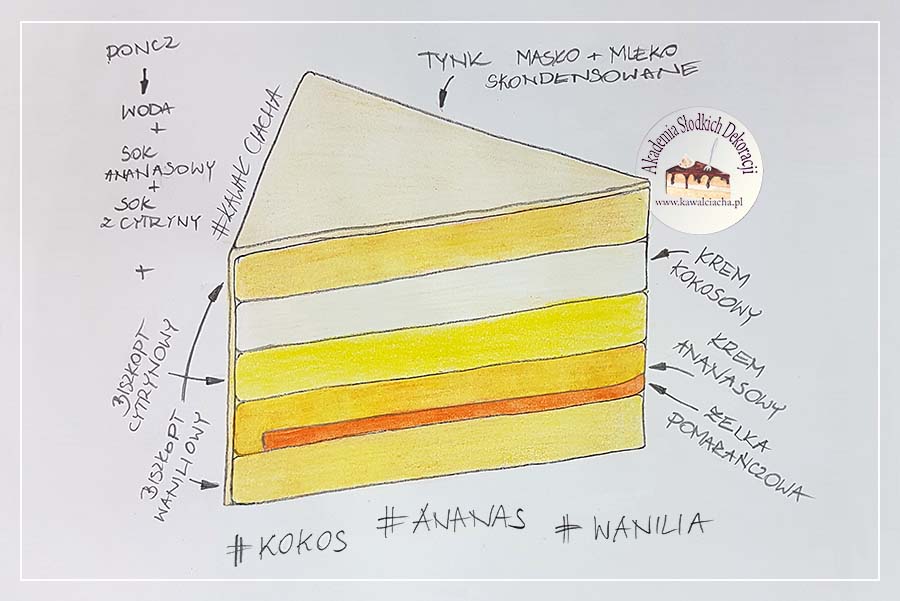 PONCZ
WODA
+
SOK
ANANASOWY
+
SOK
Z CYTRYNY
+
#KAWAŁ CIACHA
TYNK MASŁO + MLEKO
SKONDENSOWANE
Akademia Słodkich Dekoracji
www.kawalciacha.pl
KREM
KOKOSOWY
KREM
ANANASOWY
ŻELKA
POMARAŃCZOWA
BISZKOPT
CYTRYNOWY
BISZKOPT
WANILIOWY
#KOKOS #ANANAS #WANILIA